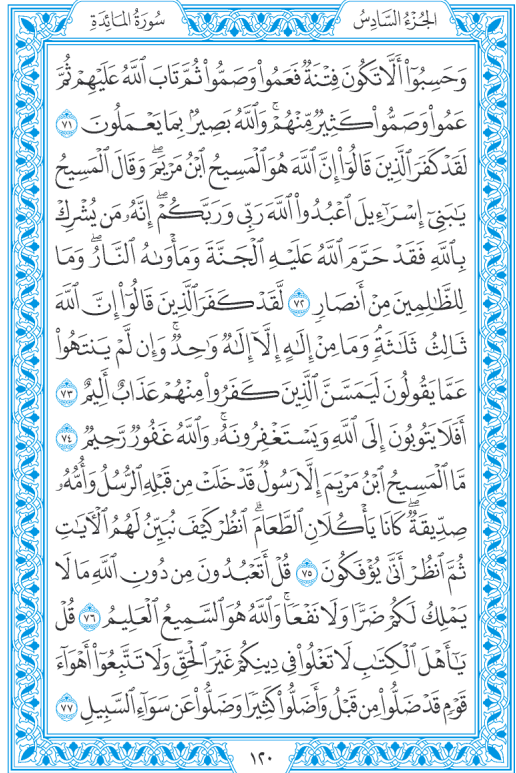 الجُزْءُ السَّادِسُ
سُورَةُ المَائِدَةِ
وَحَسِبُوٓاْ أَلَّا تَكُونَ فِتۡنَةٞ فَعَمُواْ وَصَمُّواْ ثُمَّ تَابَ ٱللَّهُ عَلَيۡهِمۡ ثُمَّ
عَمُواْ وَصَمُّواْ كَثِيرٞ مِّنۡهُمۡۚ وَٱللَّهُ بَصِيرُۢ بِمَا يَعۡمَلُونَ ٧١
لَقَدۡ كَفَرَ ٱلَّذِينَ قَالُوٓاْ إِنَّ ٱللَّهَ هُوَ ٱلۡمَسِيحُ ٱبۡنُ مَرۡيَمَۖ وَقَالَ ٱلۡمَسِيحُ
يَٰبَنِيٓ إِسۡرَٰٓءِيلَ ٱعۡبُدُواْ ٱللَّهَ رَبِّي وَرَبَّكُمۡۖ إِنَّهُۥ مَن يُشۡرِكۡ
بِٱللَّهِ فَقَدۡ حَرَّمَ ٱللَّهُ عَلَيۡهِ ٱلۡجَنَّةَ وَمَأۡوَىٰهُ ٱلنَّارُۖ وَمَا
لِلظَّٰلِمِينَ مِنۡ أَنصَارٖ ٧٢ لَّقَدۡ كَفَرَ ٱلَّذِينَ قَالُوٓاْ إِنَّ ٱللَّهَ
ثَالِثُ ثَلَٰثَةٖۘ وَمَا مِنۡ إِلَٰهٍ إِلَّآ إِلَٰهٞ وَٰحِدٞۚ وَإِن لَّمۡ يَنتَهُواْ
عَمَّا يَقُولُونَ لَيَمَسَّنَّ ٱلَّذِينَ كَفَرُواْ مِنۡهُمۡ عَذَابٌ أَلِيمٌ ٧٣
أَفَلَا يَتُوبُونَ إِلَى ٱللَّهِ وَيَسۡتَغۡفِرُونَهُۥۚ وَٱللَّهُ غَفُورٞ رَّحِيمٞ ٧٤
مَّا ٱلۡمَسِيحُ ٱبۡنُ مَرۡيَمَ إِلَّا رَسُولٞ قَدۡ خَلَتۡ مِن قَبۡلِهِ ٱلرُّسُلُ وَأُمُّهُۥ
صِدِّيقَةٞۖ كَانَا يَأۡكُلَانِ ٱلطَّعَامَۗ ٱنظُرۡ كَيۡفَ نُبَيِّنُ لَهُمُ ٱلۡأٓيَٰتِ
ثُمَّ ٱنظُرۡ أَنَّىٰ يُؤۡفَكُونَ ٧٥ قُلۡ أَتَعۡبُدُونَ مِن دُونِ ٱللَّهِ مَا لَا
يَمۡلِكُ لَكُمۡ ضَرّٗا وَلَا نَفۡعٗاۚ وَٱللَّهُ هُوَ ٱلسَّمِيعُ ٱلۡعَلِيمُ ٧٦ قُلۡ
يَٰٓأَهۡلَ ٱلۡكِتَٰبِ لَا تَغۡلُواْ فِي دِينِكُمۡ غَيۡرَ ٱلۡحَقِّ وَلَا تَتَّبِعُوٓاْ أَهۡوَآءَ
قَوۡمٖ قَدۡ ضَلُّواْ مِن قَبۡلُ وَأَضَلُّواْ كَثِيرٗا وَضَلُّواْ عَن سَوَآءِ ٱلسَّبِيلِ ٧٧
١٢٠